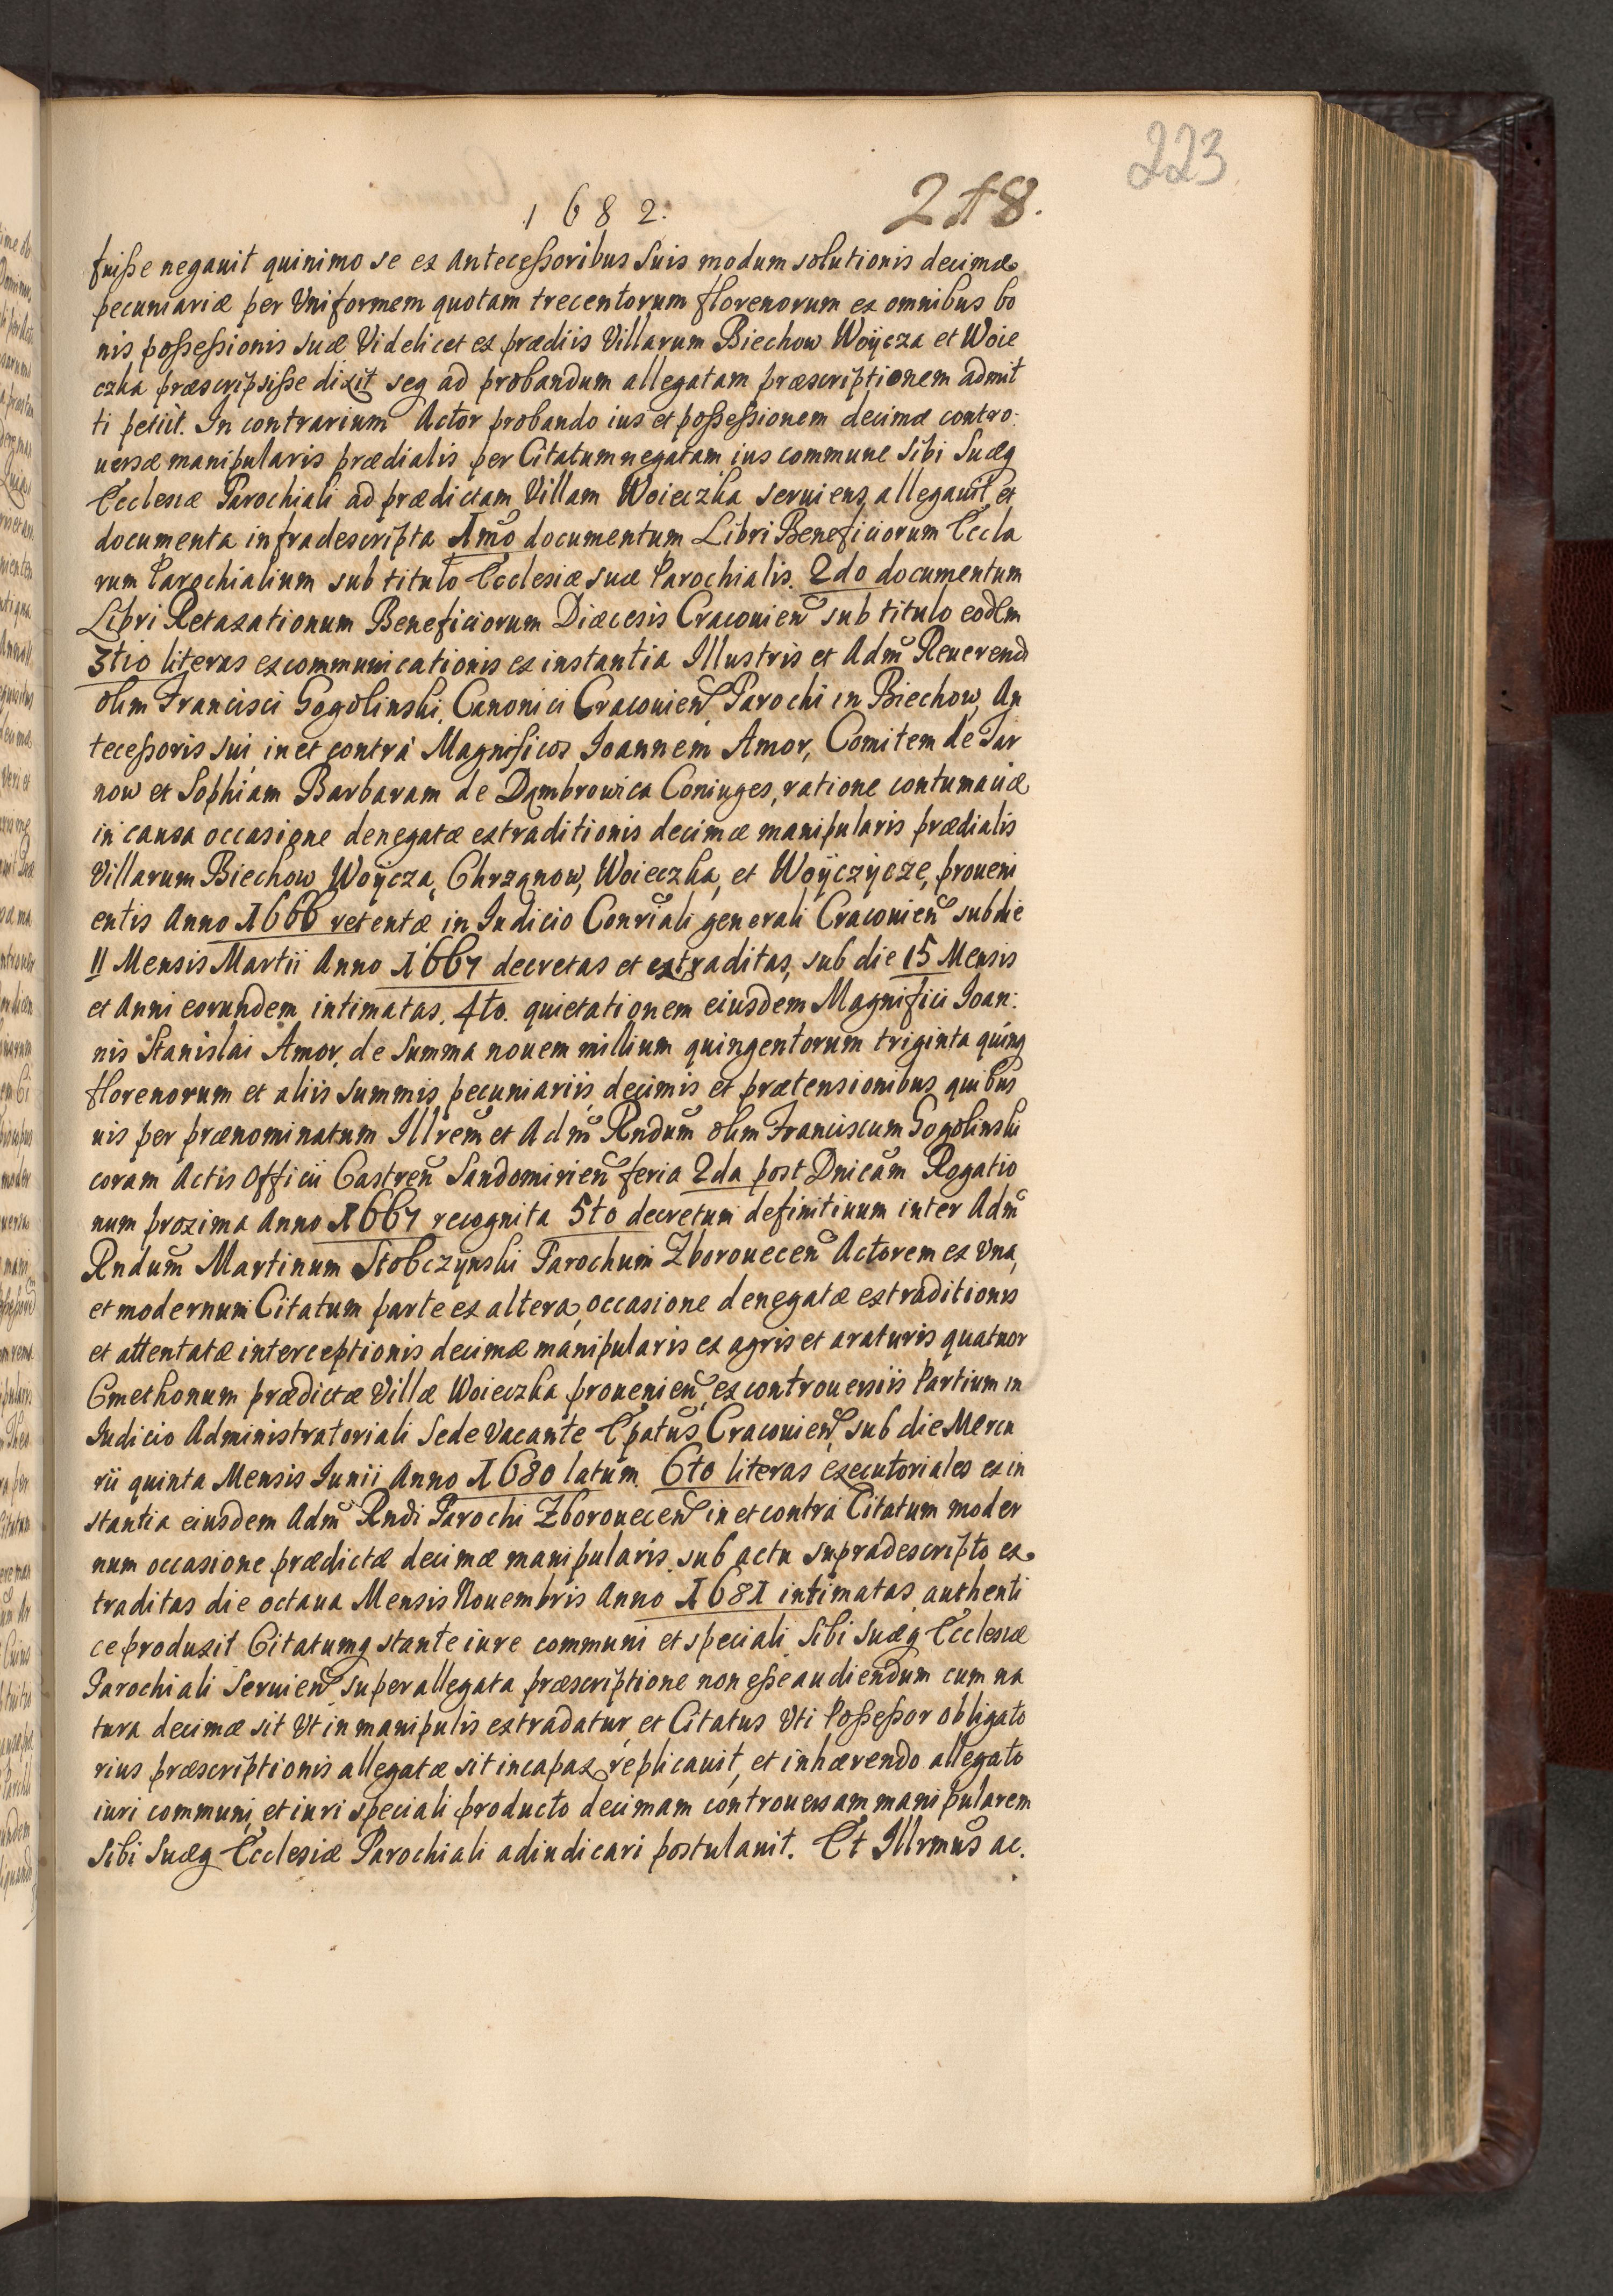 223
1682. 218.
fuisse negauit quinimo se ex Antecessoribus Suis modum solutionis decimæ
pecuniariæ per Vniformem quotam trecentorum florenorum ex omnibus bo
nis possessionis suæ Videlicet ex prædiis Villarum Biechow Woÿcza et Woie
czka præscripsisse dixit seq ad probandum allegatam præscriptionem admit
ti petiit. In contrarium Actor probando ius et possessionem decimæ contro:
uersæ manipularis prædialis per Citatum negatam ius commune Sibi Suæq
Ecclesiæ Parochiali ad prædictam Villam Woieczka seruiens allegauit et
documenta infradescripta 1mo documentum Libri Beneficiorum Eccla
rum Parochialium sub titulo Ecclesiæ suæ Parochialis. 2do documentum
Libri Retaxationum Beneficiorum Diæcesis Cracouien sub titulo eodem
3tio literas excommunicationis ex instantia Illustris et Adm Reuerend
olim Francisci Gogolinski, Canonici Cracouien Parochi in Biechow, An
tecessoris sui in et contra Magnificos Joannem Amor, Comitem de Tar
now et Sophiam Barbaram de Dąmbrowica Coniuges, ratione contumaciæ
in causa occasione denegatæ extraditionis decimæ manipularis prædialis
Villarum Biechow, Woÿcza, Chrząnow, Woieczka, et Woÿczÿcze, proueni
entis Anno 1666 retentæ in Iudicio Conriali generali Cracouien sub die
11 Mensis Martii Anno 1667 decretas et extraditas, sub die 15 Mensis
et Anni eorundem intimatas. 4to. quietationem eiusdem Magnifici Ioan:
nis Stanislai Amor de summa nouem millium quingentorum triginta quinq
florenorum et aliis summis pecuniariis decimis et prætensionibus quibus
uis per prænominatum Illrem et Adm Rndum olim Franciscum Gogolinski
coram Actis Officii Castren Sandomirien feria 2da post Dnicam Rogatio
num proxima Anno 1667 recognita 5to decretum definitiuum inter Adm
Rndum Martinum Stobczynski Parochum Zborouecen Actorem ex Vna,
et modernum Citatum parte ex altera, occasione denegatæ extraditionis
et attentatæ interceptionis decimæ manipularis ex agris et araturis quatuor
Cmethonum prædictæ Villæ Woieczka prouenien, ex controuersiis Partium in
Iudicio Administratoriali Sede Vacante Epatus Cracouien, sub die Mercu
rii quinta Mensis Iunii Anno 1680 latum. 6to literas executoriales ex in
stantia eiusdem Adm Rndi Parochi Zborouecen in et contra Citatum moder
num occasione prædictæ decimæ manipularis sub actu supradescripto ex
traditas die octaua Mensis Nouembris Anno 1681 intimatas authenti
ce produxit Citatumq stante iure communi et speciali Sibi Suæq Ecclesiæ
Parochiali Seruien super allegata præscriptione non esse audiendum cum na
tura decimæ sit Vt in manipulis extradatur, et Citatus Vti Possessor obligato
rius præscriptionis allegatæ sit incapax replicauit, et inhærendo allegato
iuri communi, et iuri speciali producto decimam controuersam manipularem
Sibi Suæq Ecclesiæ Parochiali adiudicari postulauit. Et Illrmus ac.